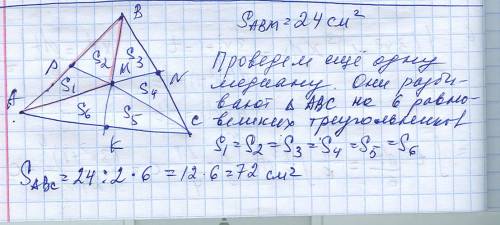 B
S₂ S₃
P M N
S₁ S₄
A S₆ S₅
K C
S_ABM = 24 см²
Проведем ещё одну
медиану. Они разби-
вают Δ ABC на 6 равно-
великих треугольников
S₁ = S₂ = S₃ = S₄ = S₅ = S₆
S_ABC = 24 : 2 · 6 = 12 · 6 = 72 см²